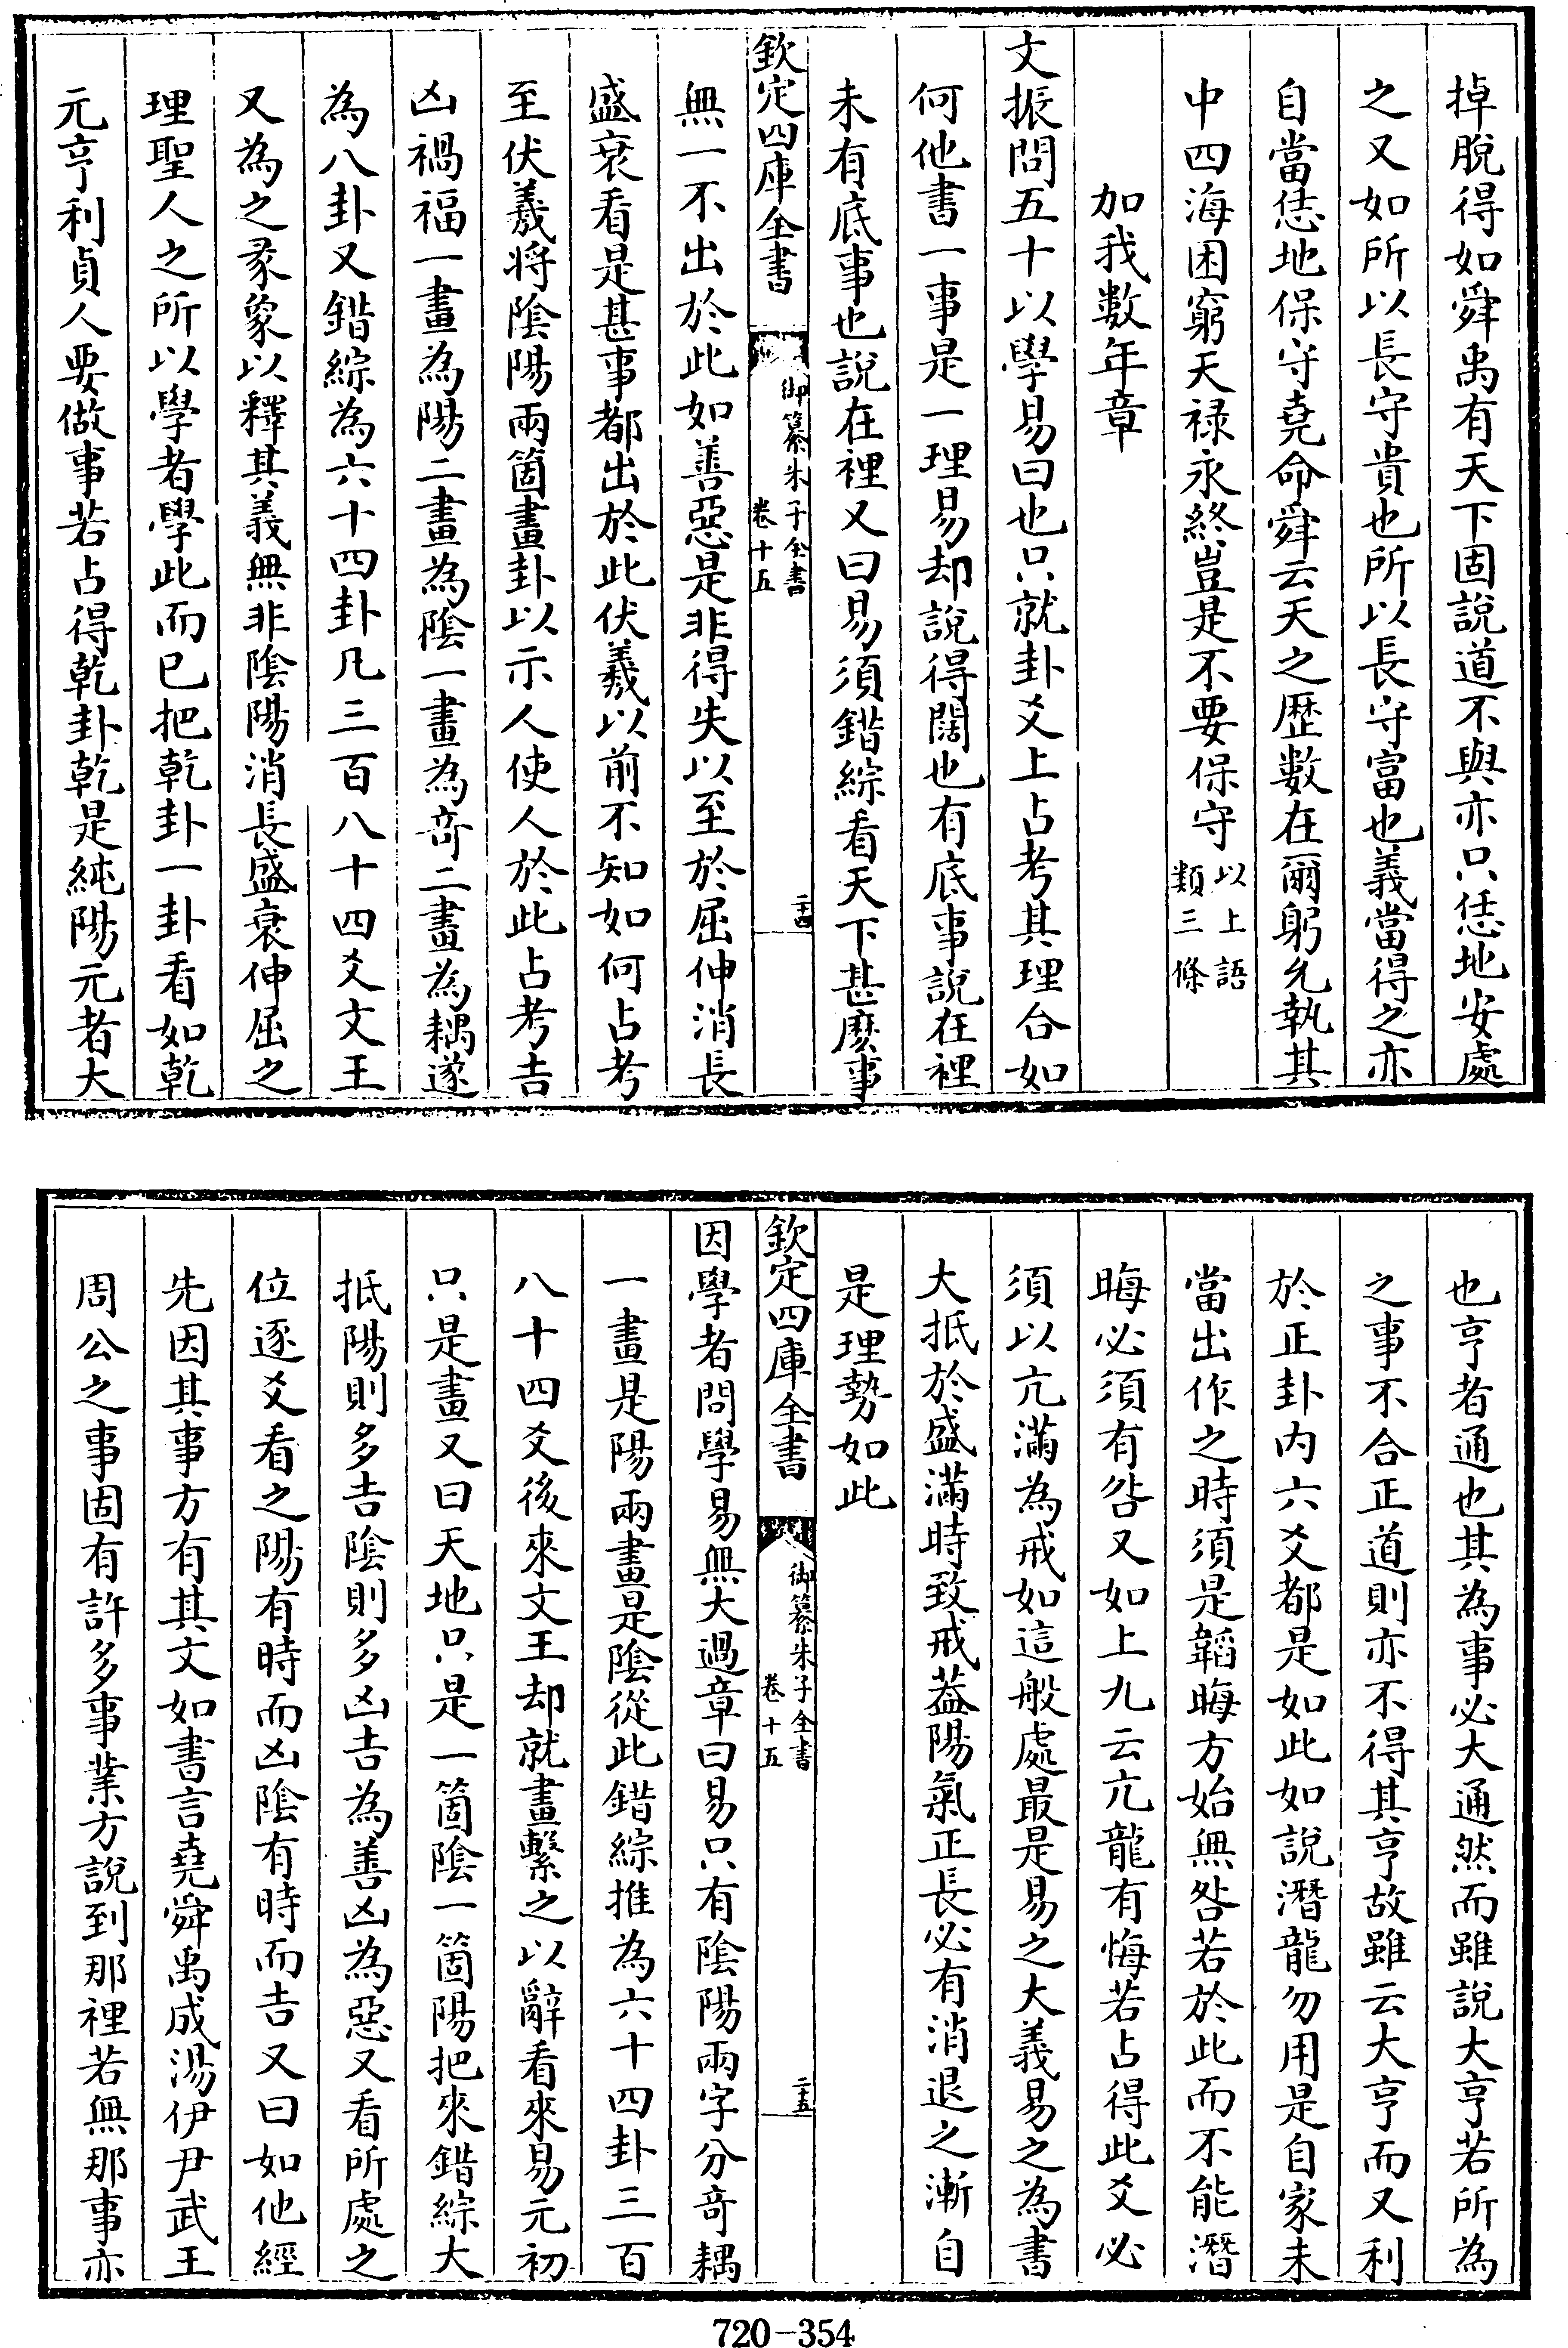 掉脫得如舜禹有天下固說道不與亦只恁地安處
之又如所以長守貴也所以長守富也義當得之亦
自當恁地保守堯命舜云天之歷數在爾躬允執其
中四海困窮天禄永終豈是不要保守以上語類三條
加我數年章
文振問五十以學易曰也只就卦爻上占考其理合如
何他書一事是一理易却說得闊也有底事說在裡
未有底事也說在裡又曰易須錯綜看天下甚麽事
欽定四庫全書 御纂朱子全書 卷十五 二十四
無一不出於此如善惡是非得失以至於屈伸消長
盛衰看是甚事都出於此伏羲以前不知如何占考
至伏羲将陰陽兩箇畫卦以示人使人於此占考吉
凶禍福一畫為陽二畫為陰一畫為竒二畫為耦遂
為八卦又錯綜為六十四卦凡三百八十四爻文王
又為之彖象以釋其義無非陰陽消長盛衰伸屈之
理聖人之所以學者學此而已把乾卦一卦看如乾
元亨利貞人要做事若占得乾卦乾是純陽元者大
也亨者通也其為事必大通然而雖說大亨若所為
之事不合正道則亦不得其亨故雖云大亨而又利
於正卦内六爻都是如此如說潛龍勿用是自家未
當出作之時須是韜晦方始無咎若於此而不能潛
晦必須有咎又如上九云亢龍有悔若占得此爻必
須以亢滿為戒如這般處最是易之大義易之為書
大抵於盛滿時致戒葢陽氣正長必有消退之漸自
是理勢如此
欽定四庫全書 御纂朱子全書 卷十五 二十五
因學者問學易無大過章曰易只有陰陽兩字分竒耦
一畫是陽兩畫是陰從此錯綜推為六十四卦三百
八十四爻後來文王却就畫繫之以辭看來易元初
只是畫又曰天地只是一箇陰一箇陽把來錯綜大
抵陽則多吉陰則多凶吉為善凶為惡又看所處之
位逐爻看之陽有時而凶陰有時而吉又曰如他經
先因其事方有其文如書言堯舜禹成湯伊尹武王
周公之事固有許多事業方說到那裡若無那事亦
720-354